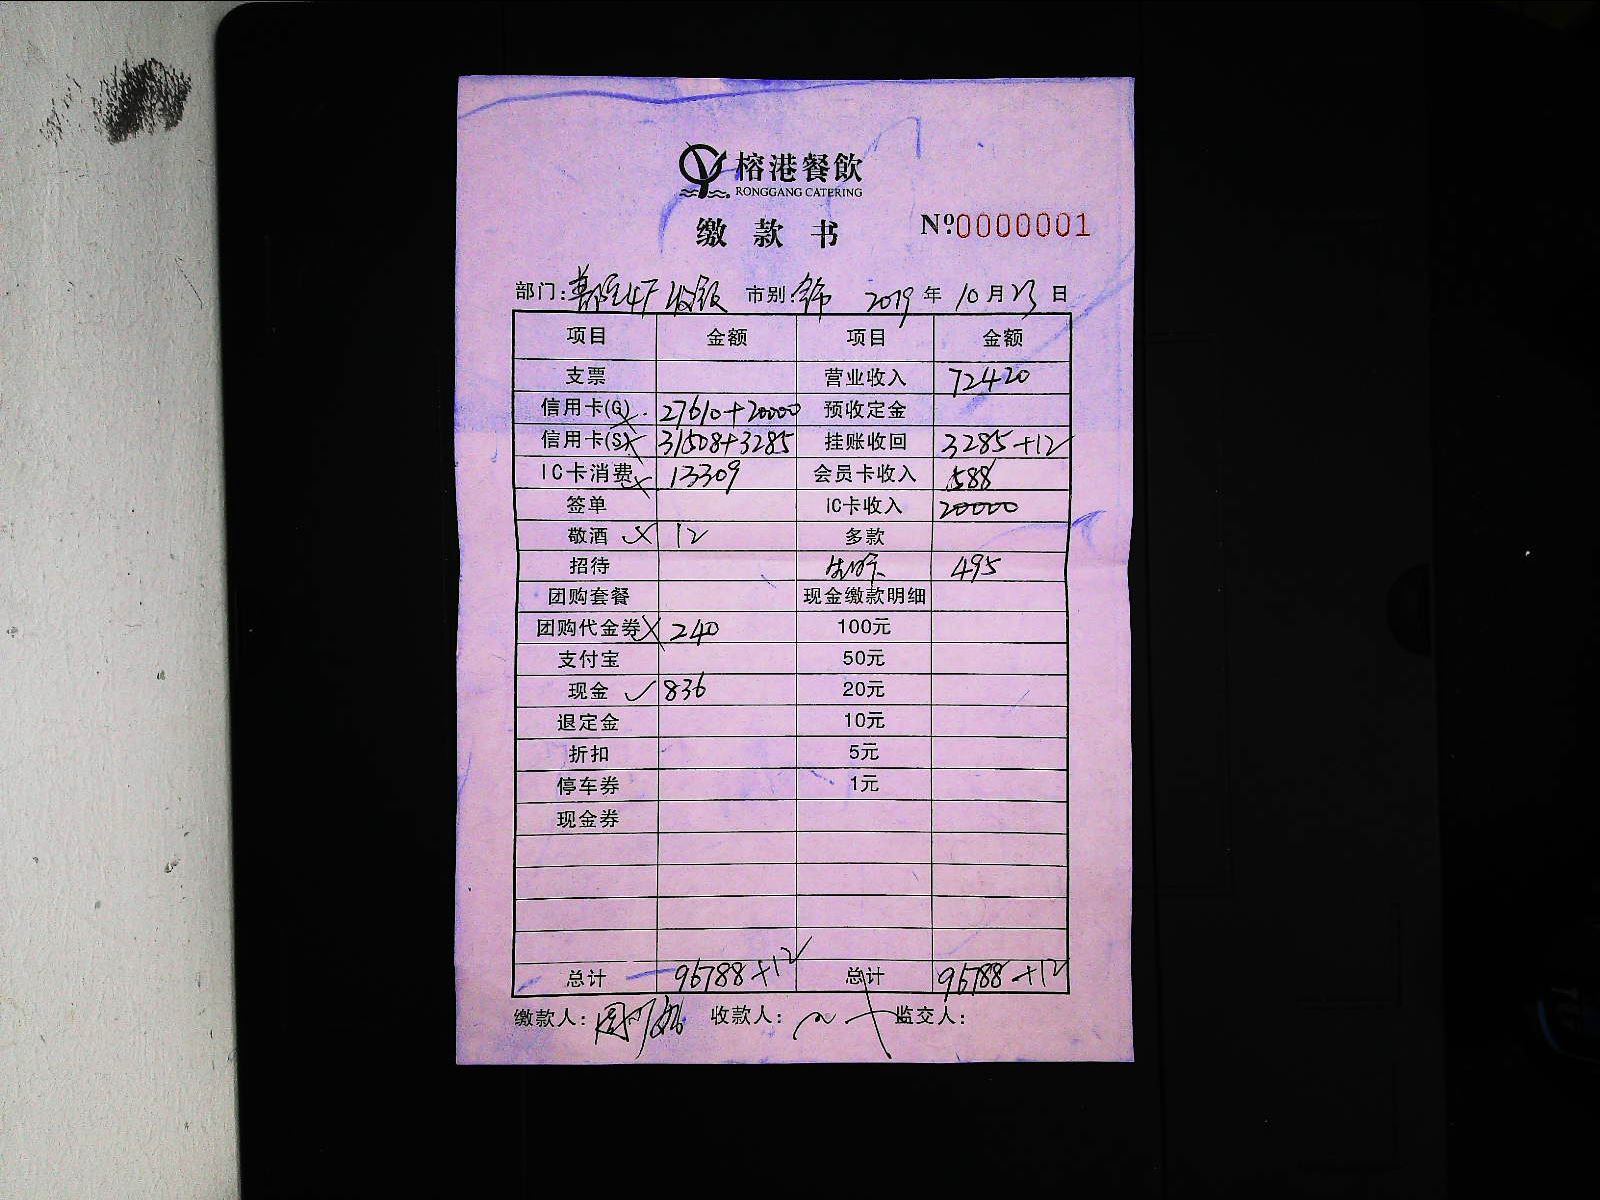 榕港餐飲
RONGGANG CATERING
缴款书 Nº0000001
部门: 4F 收银 市别: 2019年10月23日
项目 金额 项目 金额
支票 营业收入 72420
信用卡(G) 27610+20000 预收定金
信用卡(S) 31508+3285 挂账收回 3285+12
IC卡消费 13309 会员卡收入 588
签单 IC卡收入 20000
敬酒 12 多款
招待 495
团购套餐 现金缴款明细
团购代金券 240 100元
支付宝 50元
现金 836 20元
退定金 10元
折扣 5元
停车券 1元
现金券
总计 96788+12 总计 96788+12
缴款人: 收款人: 监交人: